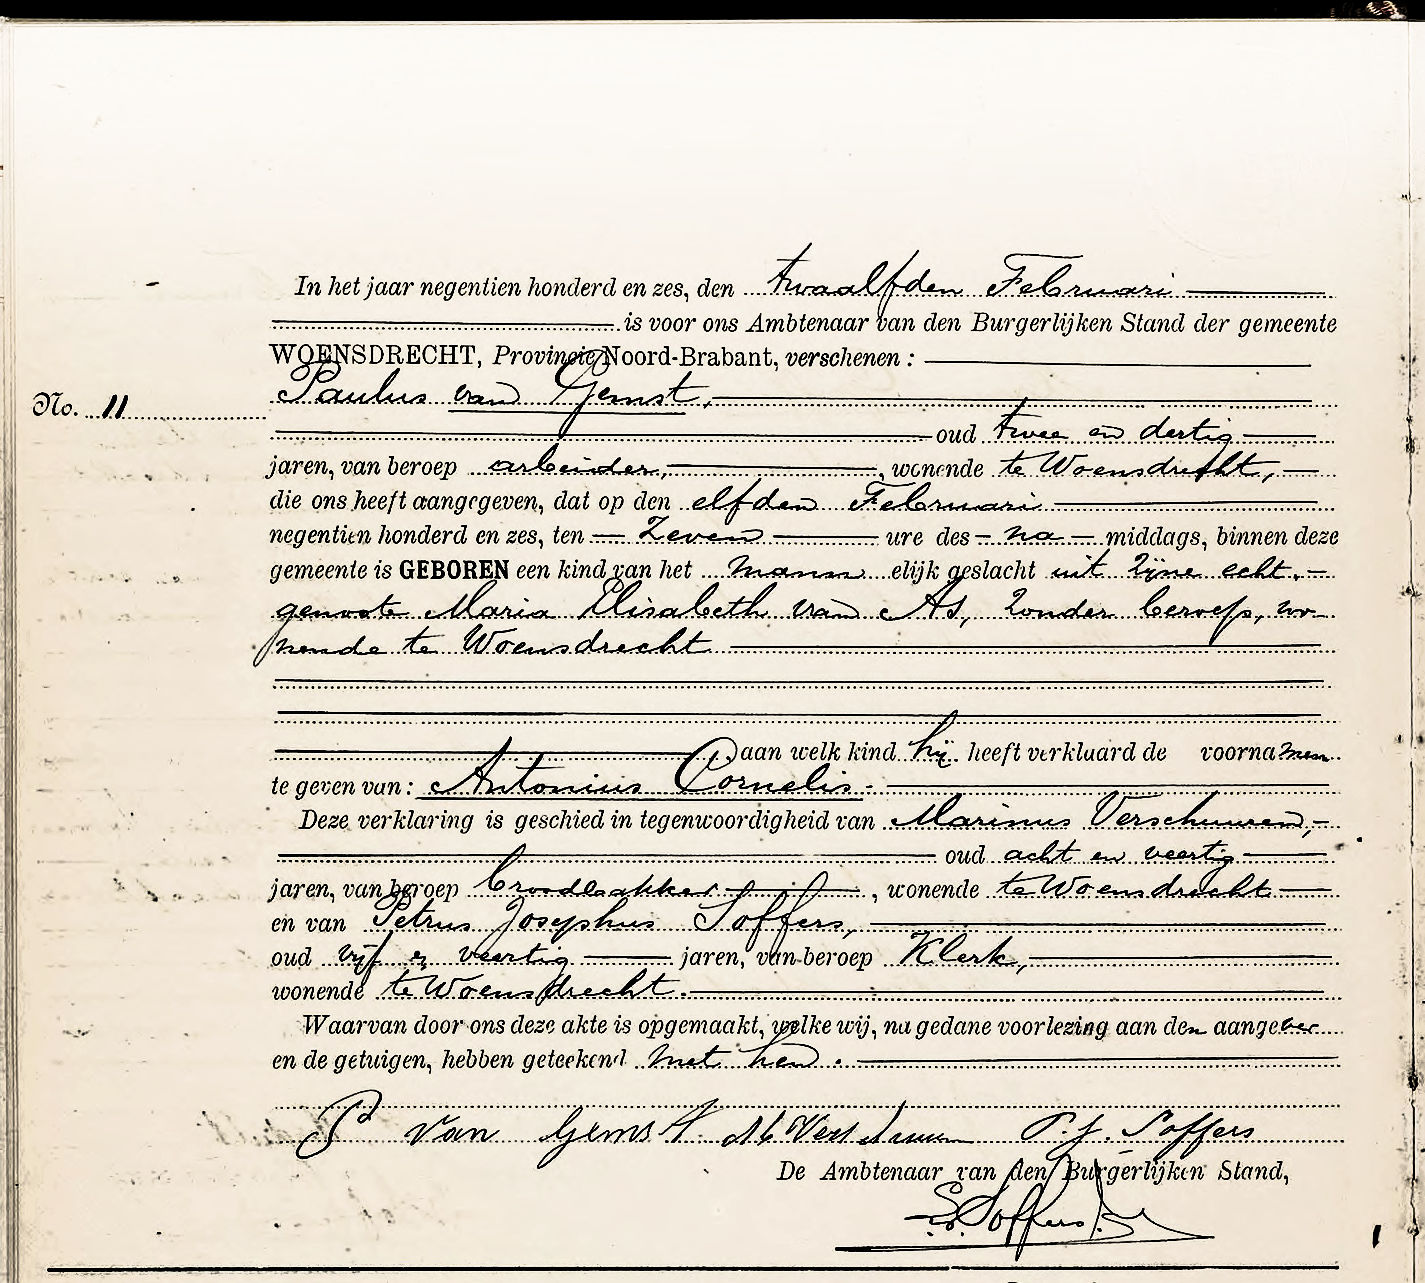 In het jaar negentien honderd en zes, den twaalfden Februari
is voor ons Ambtenaar van den Burgerlijken Stand der gemeente
WOENSDRECHT, Provincie Noord-Brabant, verschenen :
Paulus van Gemst,
No. 11
oud twee en dertig
jaren, van beroep arbeider, , wonende te Woensdrecht,
die ons heeft aangegeven, dat op den elfden Februari
negentien honderd en zes, ten zeven ure des na middags, binnen deze
gemeente is GEBOREN een kind van het mann elijk geslacht uit zijne echt-
genoote Maria Elisabeth van As, zonder beroep, wo-
nende te Woensdrecht
aan welk kind hij heeft verklaard de voornamen
te geven van: Antonius Cornelis.
Deze verklaring is geschied in tegenwoordigheid van Marinus Verschuuren,
oud acht en veertig
jaren, van beroep broodbakker , wonende te Woensdrecht
en van Petrus Josephus Soffers,
oud vijf en veertig jaren, van beroep Klerk,
wonende te Woensdrecht.
Waarvan door ons deze akte is opgemaakt, welke wij, na gedane voorlezing aan den aangever
en de getuigen, hebben geteekend met hen.
P van Gemst M Verschuuren P. J. Soffers
De Ambtenaar van den Burgerlijken Stand,
Soffers